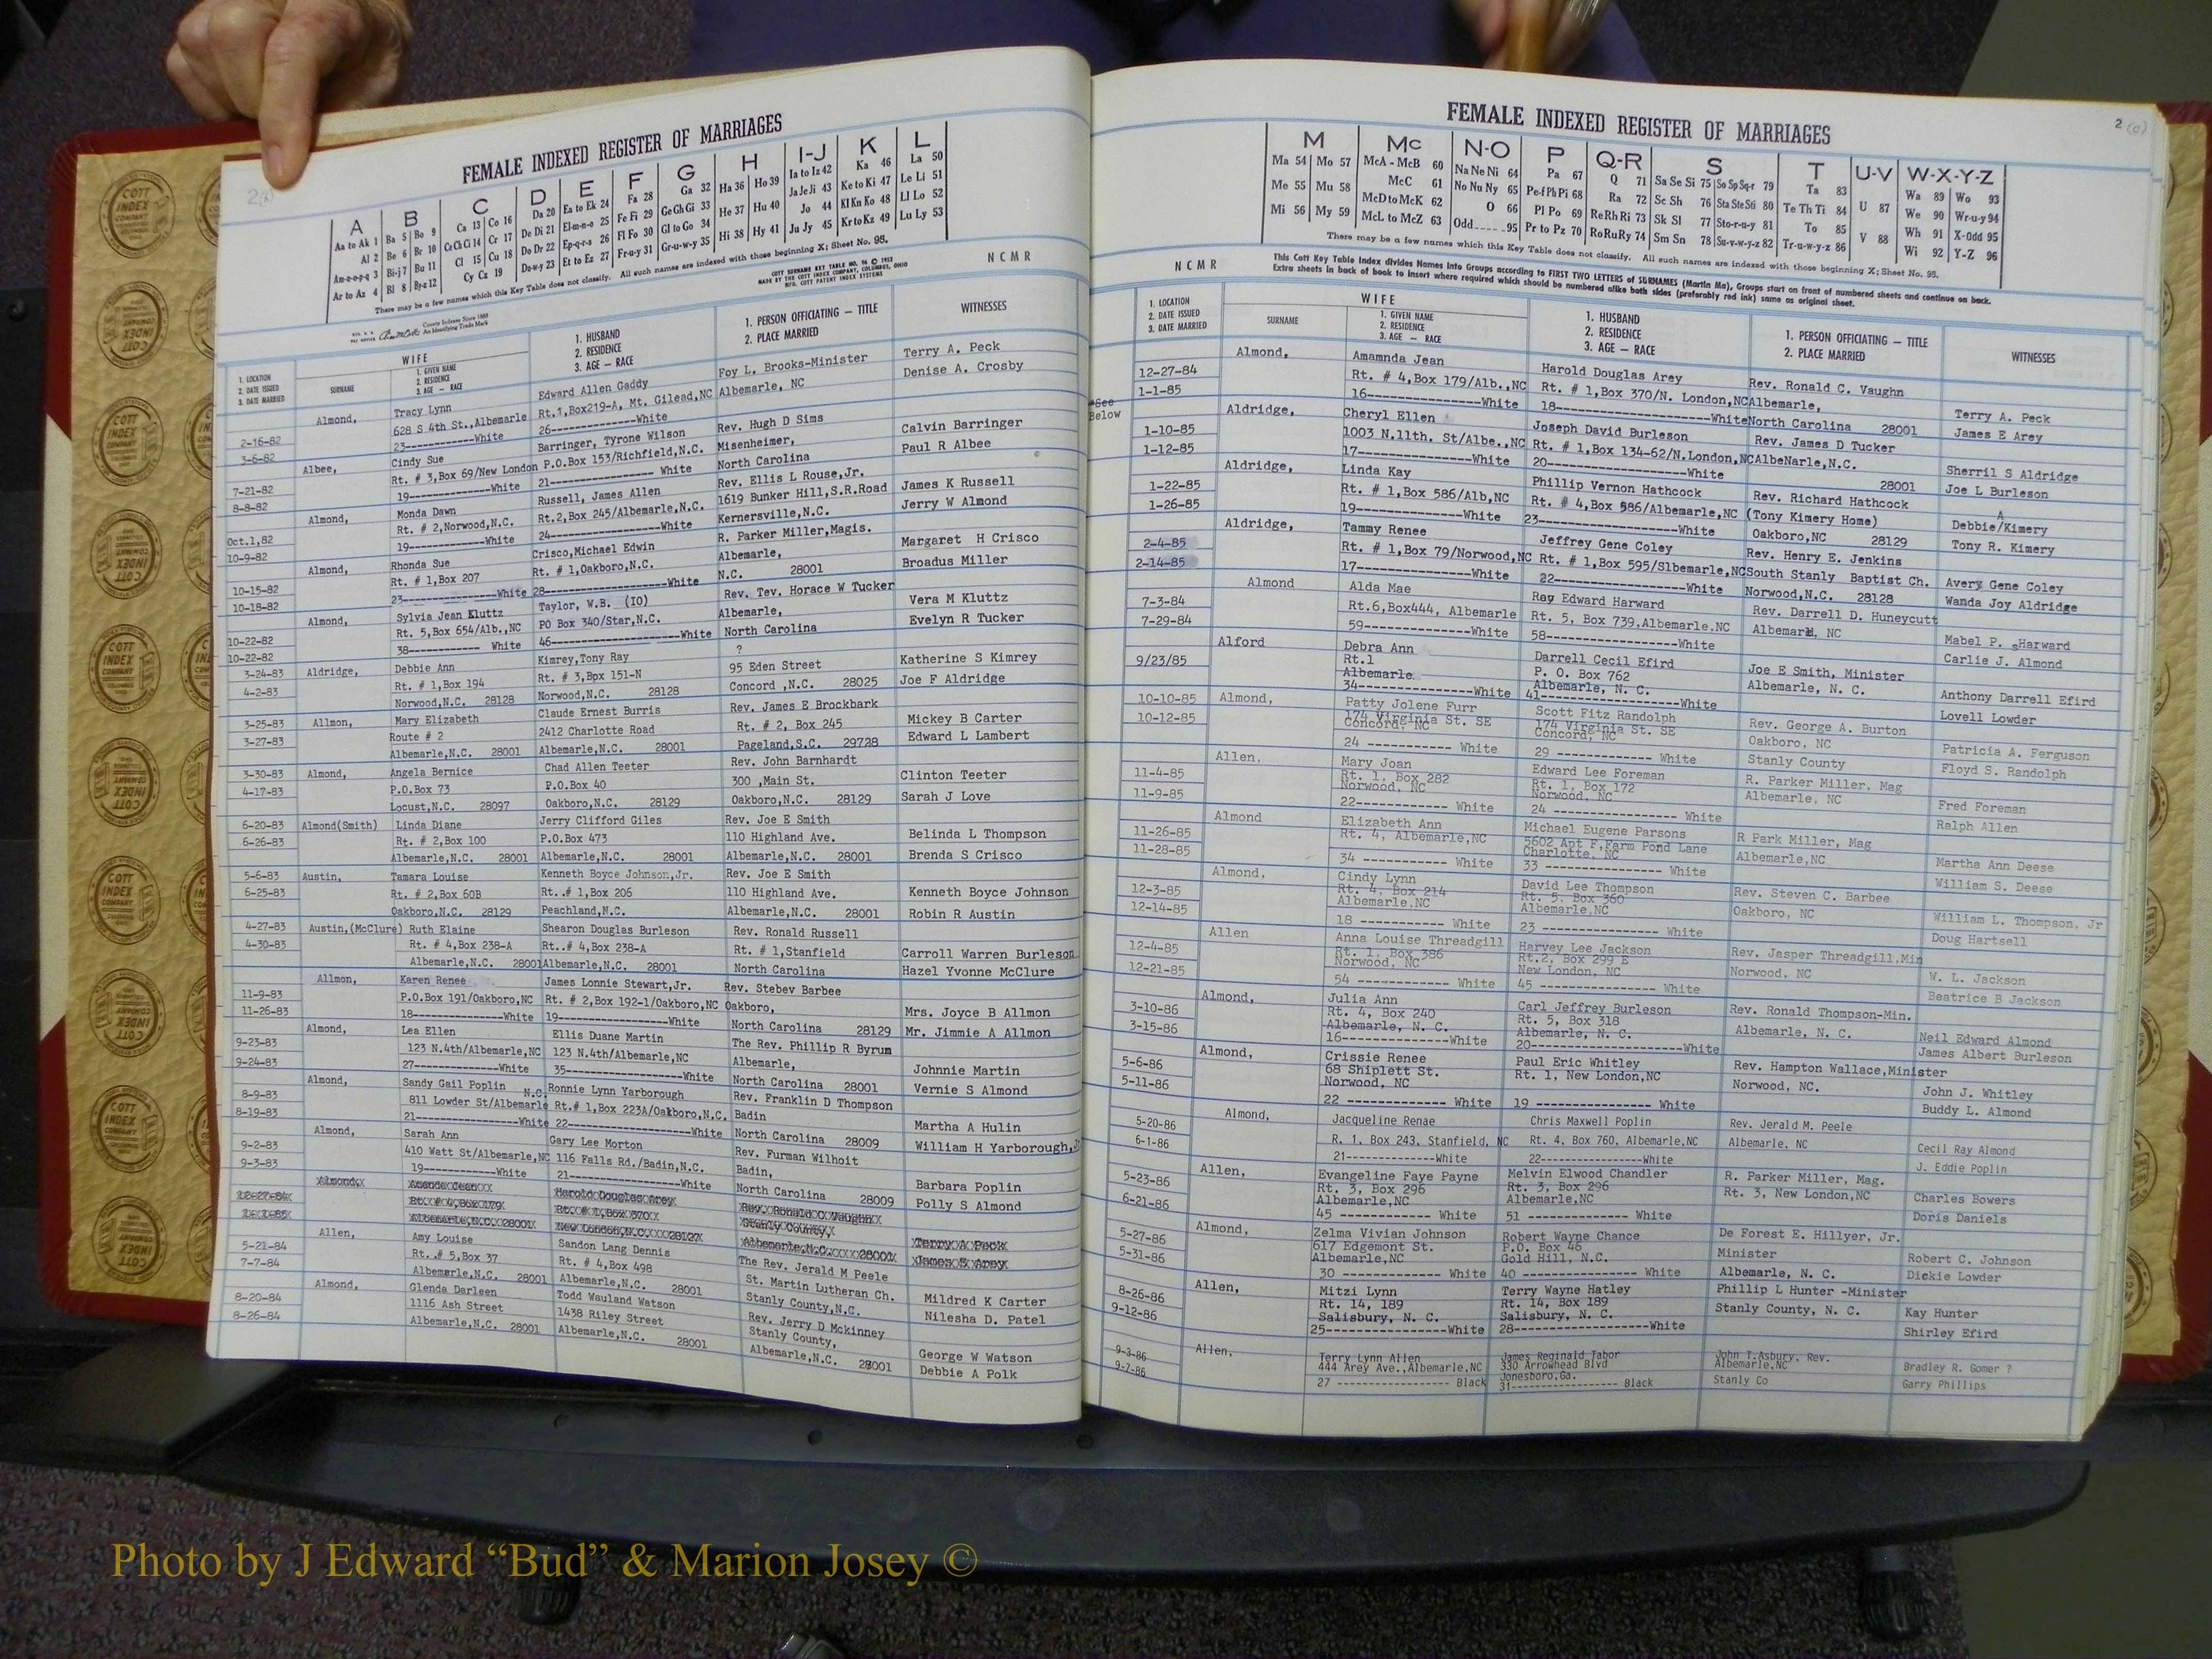 2(B)
FEMALE INDEXED REGISTER OF MARRIAGES
A B C D E F G H I-J K L
Aa to Ak 1 Ba 5 Bo 9 Ca 13 Co 16 Da 20 Ea to Ek 24 Fa 28 Ga 32 Ha 36 Ho 39 Ia to Iz 42 Ka 46 La 50
Al 2 Be 6 Br 10 Ce Ch Ci 14 Cr 17 De Di 21 El-m-n-o 25 Fe Fi 29 Ge Gh Gi 33 He 37 Hu 40 Ja Je Ji 43 Ke to Ki 47 Le Li 51
Am-n-o-p-q 3 Bi-j 7 Bu 11 Cl 15 Cu 18 Do Dr 22 Ep-q-r-s 26 Fl Fo 30 Gl to Go 34 Hi 38 Hy 41 Jo 44 Kl Kn Ko 48 Ll Lo 52
Ar to Az 4 Bl 8 By-z 12 Cy Cz 19 Du-w-y 23 Et to Ez 27 Fr-u-y 31 Gr-u-w-y 35 Ju Jy 45 Kr to Kz 49 Lu Ly 53
There may be a few names which this Key Table does not classify. All such names are indexed with those beginning X; Sheet No. 95.
County Indexes Since 1888
An Identifying Trade Mark
COTT SURNAME KEY TABLE NO. 96 © 1952
MADE BY THE COTT INDEX COMPANY, COLUMBUS, OHIO
MFG. COTT PATENT INDEX SYSTEMS
N C M R
1. LOCATION
2. DATE ISSUED
3. DATE MARRIED
WIFE
SURNAME
1. GIVEN NAME
2. RESIDENCE
3. AGE — RACE
1. HUSBAND
2. RESIDENCE
3. AGE — RACE
1. PERSON OFFICIATING — TITLE
2. PLACE MARRIED
WITNESSES
Almond, Tracy Lynn Edward Allen Gaddy Foy L. Brooks-Minister Terry A. Peck
2-16-82 628 S 4th St.,Albemarle Rt.1,Box219-A, Mt. Gilead,NC Albemarle, NC Denise A. Crosby
3-6-82 23------------White 26-------------White
Albee, Cindy Sue Barringer, Tyrone Wilson Rev. Hugh D Sims Calvin Barringer
7-21-82 Rt. # 3,Box 69/New London P.O.Box 153/Richfield,N.C. Misenheimer, Paul R Albee
8-8-82 19-------------White 21--------------- White North Carolina
Almond, Monda Dawn Russell, James Allen Rev. Ellis L Rouse,Jr. James K Russell
Oct.1,82 Rt. # 2,Norwood,N.C. Rt.2,Box 245/Albemarle,N.C. 1619 Bunker Hill,S.R.Road Jerry W Almond
10-9-82 19------------White 24---------------------White Kernersville,N.C.
Almond, Rhonda Sue Crisco,Michael Edwin R. Parker Miller,Magis. Margaret H Crisco
10-15-82 Rt. # 1,Box 207 Rt. # 1,Oakboro,N.C. Albemarle, Broadus Miller
10-18-82 23---------------White 28------------------White N.C. 28001
Almond, Sylvia Jean Kluttz Taylor, W.B. (IO) Rev. Tev. Horace W Tucker Vera M Kluttz
10-22-82 Rt. 5,Box 654/Alb.,NC PO Box 340/Star,N.C. Albemarle, Evelyn R Tucker
10-22-82 38------------ White 46---------------------White North Carolina
3-24-83 Aldridge, Debbie Ann Kimrey,Tony Ray ? Katherine S Kimrey
4-2-83 Rt. # 1,Box 194 Rt. # 3,Bpx 151-N 95 Eden Street Joe F Aldridge
Norwood,N.C. 28128 Norwood,N.C. 28128 Concord ,N.C. 28025
3-25-83 Allmon, Mary Elizabeth Claude Ernest Burris Rev. James E Brockbark Mickey B Carter
3-27-83 Route # 2 2412 Charlotte Road Rt. # 2, Box 245 Edward L Lambert
Albemarle,N.C. 28001 Albemarle,N.C. 28001 Pageland,S.C. 29728
3-30-83 Almond, Angela Bernice Chad Allen Teeter Rev. John Barnhardt Clinton Teeter
4-17-83 P.O.Box 73 P.O.Box 40 300 ,Main St. Sarah J Love
Locust,N.C. 28097 Oakboro,N.C. 28129 Oakboro,N.C. 28129
6-20-83 Almond(Smith) Linda Diane Jerry Clifford Giles Rev. Joe E Smith Belinda L Thompson
6-26-83 Rt. # 2,Box 100 P.O.Box 473 110 Highland Ave. Brenda S Crisco
Albemarle,N.C. 28001 Albemarle,N.C. 28001 Albemarle,N.C. 28001
5-6-83 Austin, Tamara Louise Kenneth Boyce Johnson,Jr. Rev. Joe E Smith Kenneth Boyce Johnson
6-25-83 Rt. # 2,Box 60B Rt..# 1,Box 206 110 Highland Ave. Robin R Austin
Oakboro,N.C. 28129 Peachland,N.C. Albemarle,N.C. 28001
4-27-83 Austin,(McClure) Ruth Elaine Shearon Douglas Burleson Rev. Ronald Russell Carroll Warren Burleson
4-30-83 Rt. # 4,Box 238-A Rt..# 4,Box 238-A Rt. # 1,Stanfield Hazel Yvonne McClure
Albemarle,N.C. 28001 Albemarle,N.C. 28001 North Carolina
Allmon, Karen Renee James Lonnie Stewart,Jr. Rev. Stebev Barbee
11-9-83 P.O.Box 191/Oakboro,NC Rt. # 2,Box 192-1/Oakboro,NC Oakboro, Mrs. Joyce B Allmon
11-26-83 18---------------White 19------------------White North Carolina 28129 Mr. Jimmie A Allmon
Almond, Lea Ellen Ellis Duane Martin The Rev. Phillip R Byrum
9-23-83 123 N.4th/Albemarle,NC 123 N.4th/Albemarle,NC Albemarle, Johnnie Martin
9-24-83 27--------------White 35------------------White North Carolina 28001 Vernie S Almond
Almond, Sandy Gail Poplin Ronnie Lynn Yarborough Rev. Franklin D Thompson
8-9-83 811 Lowder St/Albemarle N.C. Rt.# 1,Box 223A/Oakboro,N.C. Badin Martha A Hulin
8-19-83 21------------------White 22---------------------White North Carolina 28009 William H Yarborough,J
Almond, Sarah Ann Gary Lee Morton Rev. Furman Wilhoit
9-2-83 410 Watt St/Albemarle,NC 116 Falls Rd./Badin,N.C. Badin, Barbara Poplin
9-3-83 19------------White 21------------------White North Carolina 28009 Polly S Almond
Allen, Amy Louise Sandon Lang Dennis The Rev. Jerald M Peele
5-21-84 Rt. # 5,Box 37 Rt. # 4,Box 498 St. Martin Lutheran Ch. Mildred K Carter
7-7-84 Albemarle,N.C. 28001 Albemarle,N.C. 28001 Stanly County,N.C. Nilesha D. Patel
Almond, Glenda Darleen Todd Wauland Watson Rev. Jerry D Mckinney
8-20-84 1116 Ash Street 1438 Riley Street Stanly County, George W Watson
8-26-84 Albemarle,N.C. 28001 Albemarle,N.C. 28001 Albemarle,N.C. 28001 Debbie A Polk
2 (C)
FEMALE INDEXED REGISTER OF MARRIAGES
M Mc N-O P Q-R S T U-V W-X-Y-Z
Ma 54 Mo 57 McA - McB 60 Na Ne Ni 64 Pa 67 Q 71 Sa Se Si 75 So Sp Sq-r 79 Ta 83 U 87 Wa 89 Wo 93
Me 55 Mu 58 McC 61 No Nu Ny 65 Pe-f Ph Pi 68 Ra 72 Sc Sh 76 Sta Ste Sti 80 Te Th Ti 84 V 88 We 90 Wr-u-y 94
Mi 56 My 59 McD to McK 62 O 66 Pl Po 69 Re Rh Ri 73 Sk Sl 77 Sto-r-u-y 81 To 85 Wh 91 X-Odd 95
McL to McZ 63 Odd 95 Pr to Pz 70 Ro Ru Ry 74 Sm Sn 78 Su-v-w-y-z 82 Tr-u-w-y-z 86 Wi 92 Y-Z 96
There may be a few names which this Key Table does not classify. All such names are indexed with those beginning X; Sheet No. 95.
This Cott Key Table Index divides Names into Groups according to FIRST TWO LETTERS of SURNAMES (Martin Ma), Groups start on front of numbered sheets and continue on back.
Extra sheets in back of book to insert where required which should be numbered alike both sides (preferably red ink) same as original sheet.
N C M R
1. LOCATION
2. DATE ISSUED
3. DATE MARRIED
WIFE
SURNAME
1. GIVEN NAME
2. RESIDENCE
3. AGE — RACE
1. HUSBAND
2. RESIDENCE
3. AGE — RACE
1. PERSON OFFICIATING — TITLE
2. PLACE MARRIED
WITNESSES
*See
Below
Almond, Amamnda Jean Harold Douglas Arey Rev. Ronald C. Vaughn
12-27-84 Rt. # 4,Box 179/Alb.,NC Rt. # 1,Box 370/N. London,NC Albemarle, Terry A. Peck
1-1-85 16---------------White 18------------------White North Carolina 28001 James E Arey
Aldridge, Cheryl Ellen Joseph David Burleson Rev. James D Tucker
1-10-85 1003 N.11th. St/Albe.,NC Rt. # 1,Box 134-62/N.London,NC AlbeNarle,N.C. Sherril S Aldridge
1-12-85 17---------------White 20---------------White 28001 Joe L Burleson
Aldridge, Linda Kay Phillip Vernon Hathcock Rev. Richard Hathcock
1-22-85 Rt. # 1,Box 586/Alb,NC Rt. # 4,Box 586/Albemarle,NC (Tony Kimery Home) Debbie/Kimery A
1-26-85 19--------------White 23------------------White Oakboro,NC 28129 Tony R. Kimery
Aldridge, Tammy Renee Jeffrey Gene Coley Rev. Henry E. Jenkins
2-4-85 Rt. # 1,Box 79/Norwood,NC Rt. # 1,Box 595/Slbemarle,NC South Stanly Baptist Ch. Avery Gene Coley
2-14-85 17---------------White 22------------------White Norwood,N.C. 28128 Wanda Joy Aldridge
Almond Alda Mae Ray Edward Harward Rev. Darrell D. Huneycutt
7-3-84 Rt.6,Box444, Albemarle Rt. 5, Box 739,Albemarle.NC Albemarle, NC Mabel P. Harward
7-29-84 59--------------White 58----------------White Carlie J. Almond
Alford Debra Ann Darrell Cecil Efird Joe E Smith, Minister
9/23/85 Rt.1 P. O. Box 762 Albemarle, N. C. Anthony Darrell Efird
Albemarle Albemarle, N. C. Lovell Lowder
34---------------White 41----------------White
10-10-85 Almond, Patty Jolene Furr Scott Fitz Randolph Rev. George A. Burton
10-12-85 174 Virginia St. SE 174 Virginia St. SE Oakboro, NC Patricia A. Ferguson
Concord, NC Concord, NC Stanly County Floyd S. Randolph
24 ----------- White 29 ----------- White
Allen, Mary Joan Edward Lee Foreman R. Parker Miller, Mag
11-4-85 Rt. 1, Box 282 Rt. 1, Box 172 Albemarle, NC Fred Foreman
11-9-85 Norwood, NC Norwood, NC Ralph Allen
22------------ White 24 ---------------- White
Almond Elizabeth Ann Michael Eugene Parsons R Park Miller, Mag
11-26-85 Rt. 4, Albemarle,NC 5602 Apt F,Farm Pond Lane Albemarle,NC Martha Ann Deese
11-28-85 Charlotte, NC William S. Deese
34 ----------- White 33 --------------- White
Almond, Cindy Lynn David Lee Thompson Rev. Steven C. Barbee
12-3-85 Rt. 4, Box 214 Rt. 5, Box 360 Oakboro, NC William L. Thompson, Jr
12-14-85 Albemarle,NC Albemarle,NC Doug Hartsell
18 ----------- White 23 --------------- White
Allen Anna Louise Threadgill Harvey Lee Jackson Rev. Jasper Threadgill,Min
12-4-85 Rt. 1, Box 386 Rt.2, Box 299 E Norwood, NC W. L. Jackson
12-21-85 Norwood, NC New London, NC Beatrice B Jackson
54 ----------- White 45 --------------- White
Almond, Julia Ann Carl Jeffrey Burleson Rev. Ronald Thompson-Min.
3-10-86 Rt. 4, Box 240 Rt. 5, Box 318 Albemarle, N. C. Neil Edward Almond
3-15-86 Albemarle, N. C. Albemarle, N. C. James Albert Burleson
16--------------White 20---------------------White
Almond, Crissie Renee Paul Eric Whitley Rev. Hampton Wallace,Minister
5-6-86 68 Shiplett St. Rt. 1, New London,NC Norwood, NC. John J. Whitley
5-11-86 Norwood, NC Buddy L. Almond
22 ------------ White 19 --------------- White
Almond, Jacqueline Renae Chris Maxwell Poplin Rev. Jerald M. Peele
5-20-86 R. 1, Box 243, Stanfield, NC Rt. 4, Box 760, Albemarle,NC Albemarle, NC Cecil Ray Almond
6-1-86 21--------------White 22--------------White J. Eddie Poplin
Allen, Evangeline Faye Payne Melvin Elwood Chandler R. Parker Miller, Mag.
5-23-86 Rt. 3, Box 296 Rt. 3, Box 296 Rt. 3, New London,NC Charles Bowers
6-21-86 Albemarle,NC Albemarle,NC Doris Daniels
45 ------------ White 51 ------------- White
Almond, Zelma Vivian Johnson Robert Wayne Chance De Forest E. Hillyer, Jr.
5-27-86 617 Edgemont St. P.O. Box 46 Minister Robert C. Johnson
5-31-86 Albemarle,NC Gold Hill, N.C. Albemarle, N. C. Dickie Lowder
30 ------------- White 40 -------------- White
Allen, Mitzi Lynn Terry Wayne Hatley Phillip L Hunter -Minister
8-26-86 Rt. 14, 189 Rt. 14, Box 189 Stanly County, N. C. Kay Hunter
9-12-86 Salisbury, N. C. Salisbury, N. C. Shirley Efird
25------------------White 28------------------White
Allen, Terry Lynn Allen James Reginald Tabor John T.Asbury, Rev.
9-3-86 444 Arey Ave.,Albemarle,NC 330 Arrowhead Blvd Albemarle,NC Bradley R. Gomer ?
9-7-86 Jonesboro,Ga. Stanly Co Garry Phillips
27 ----------------- Black 31---------------- Black
COTT
INDEX
COMPANY
Photo by J Edward “Bud” & Marion Josey ©